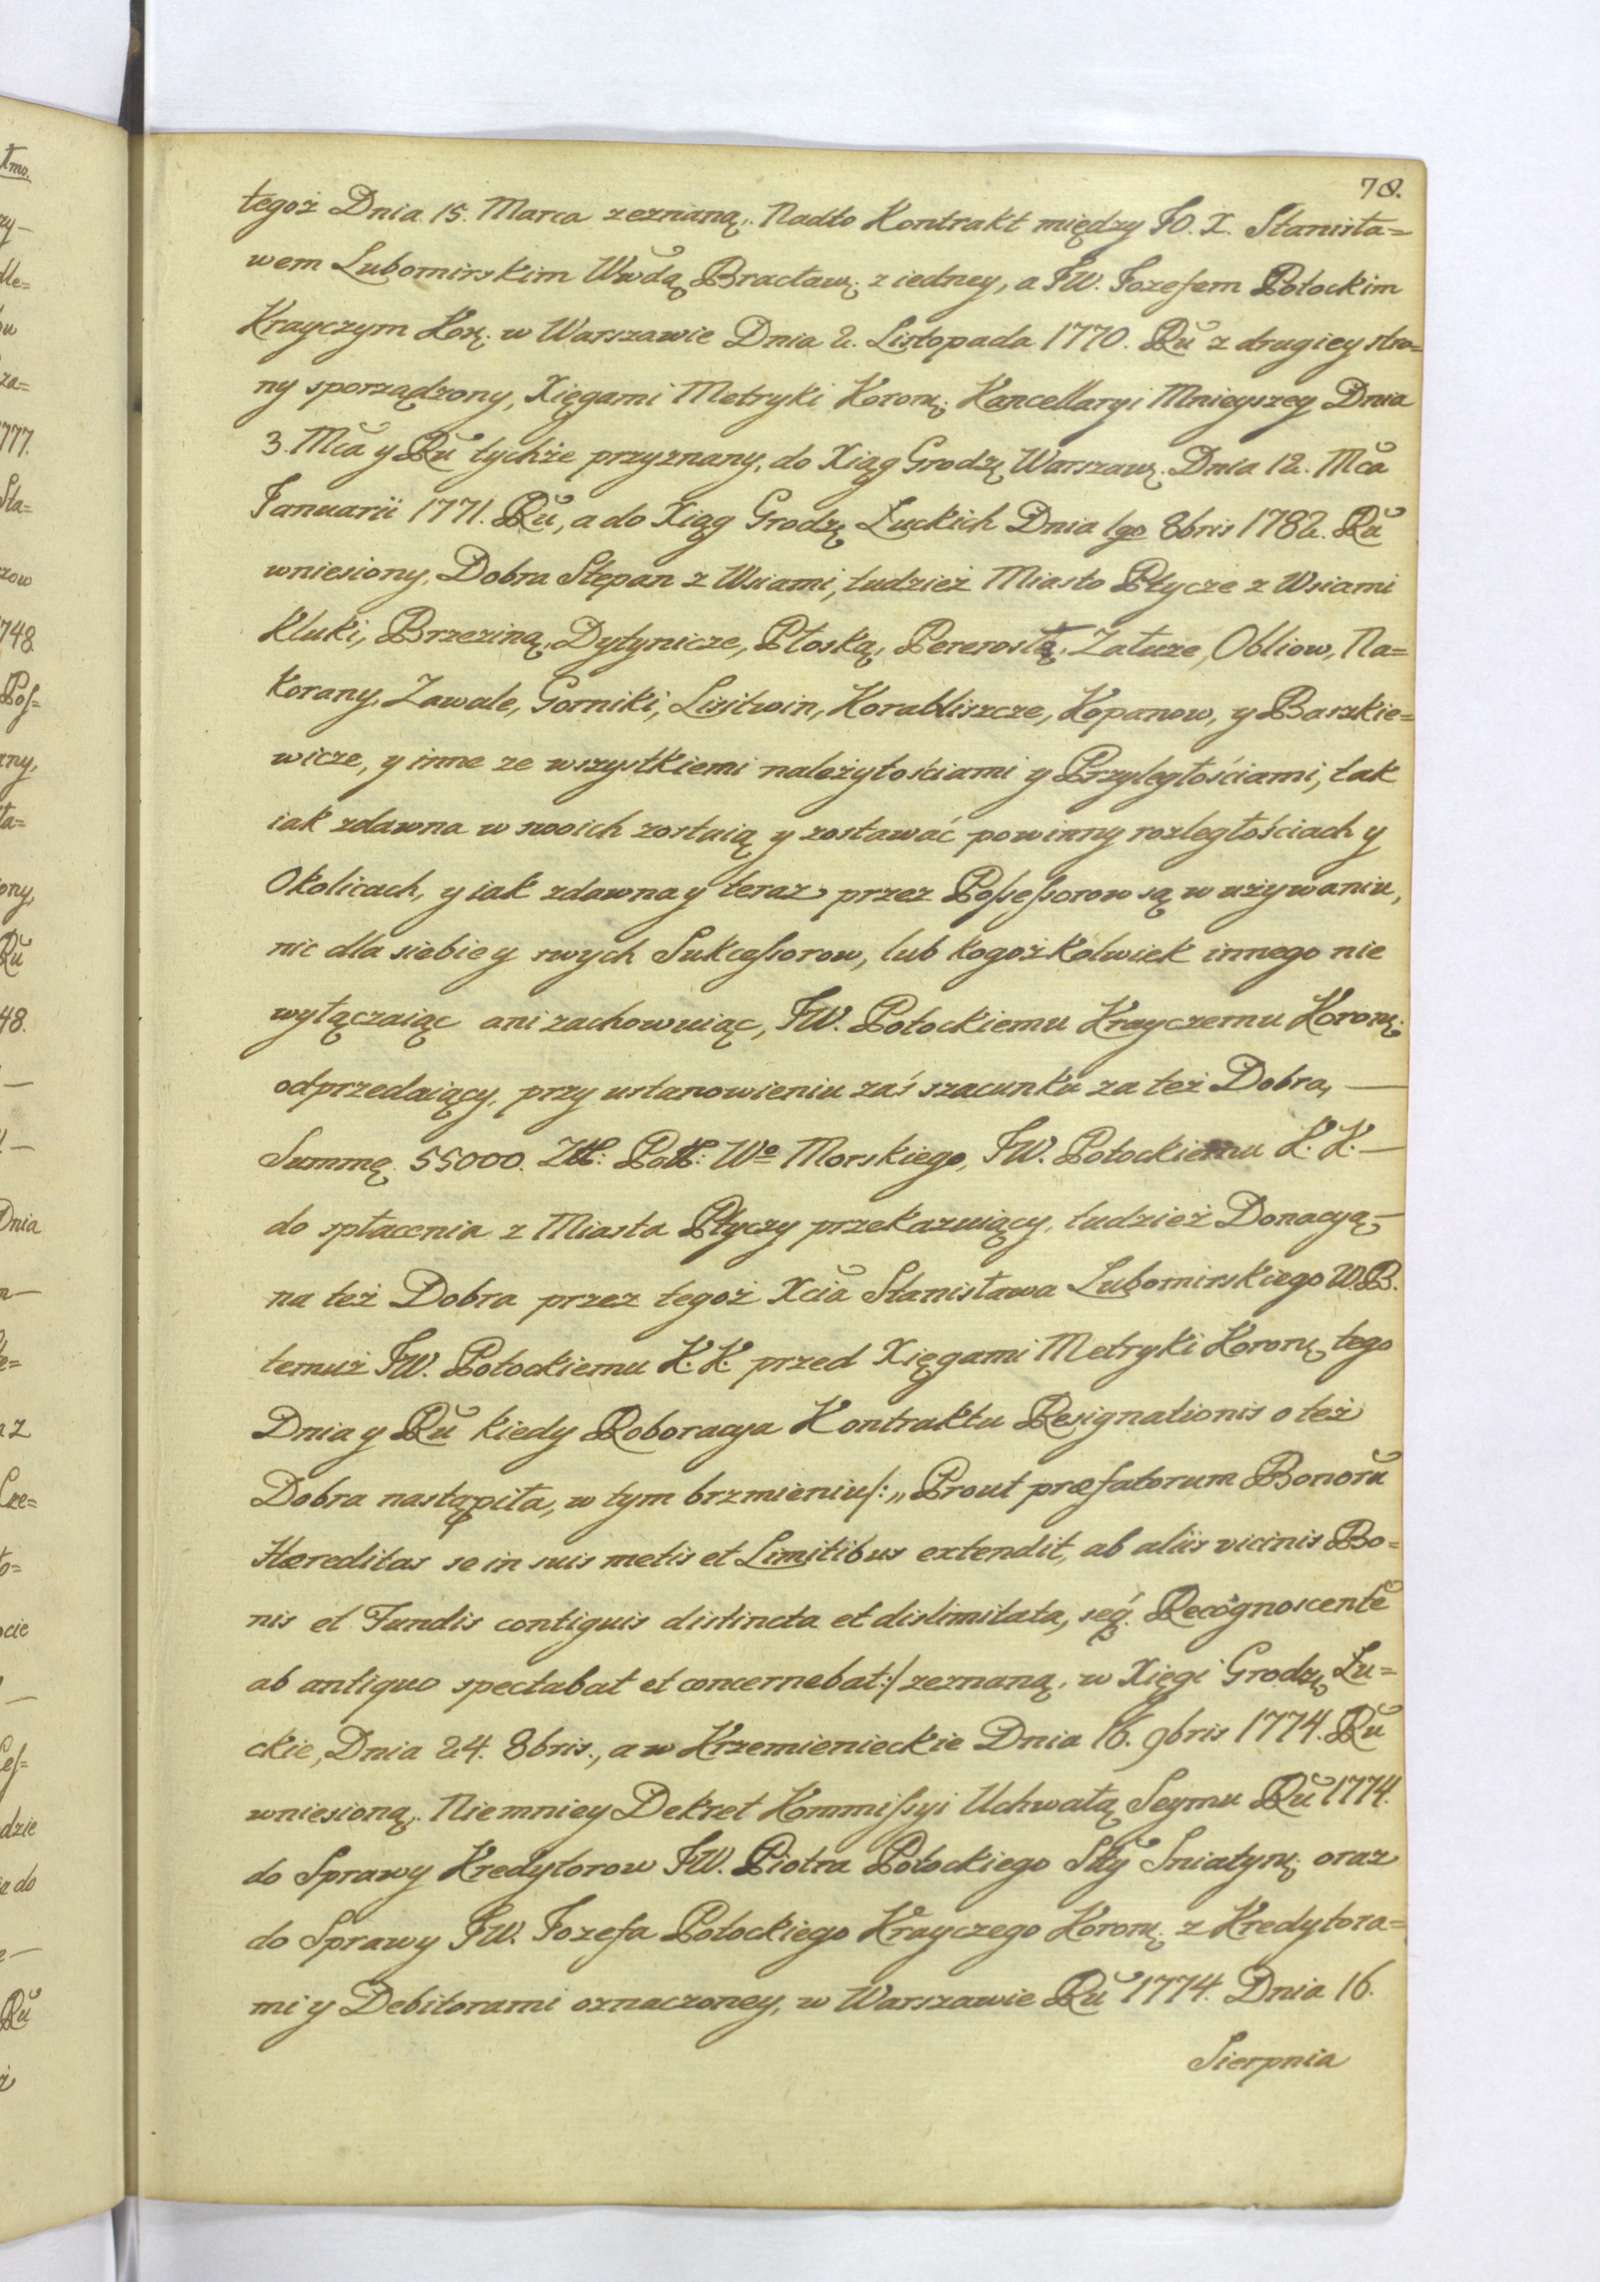 78.
tegoż Dnia 15. Marca zeznaną. Nadto Kontrakt między JO. X. Stanisła=
wem Lubomirskim Wwdą Bracław: z iedney, a JW. Jozefem Potockim
Krayczym Kor: w Warszawie Dnia 2. Listopada 1770. Ru z drugiey stro=
ny sporządzony, Xięgami Metryki Koron: Kancellaryi Mnieyszey Dnia
3. Mca y Ru tychże przyznany, do Xiąg Grodz: Warszaw: Dnia 12. Mca
Januarii 1771. Ru, a do Xiąg Grodz: Łuckich Dnia 1go 8bris 1782. Ru
wniesiony, Dobra Stepan z Wsiami, tudzież Miasto Ptycze z Wsiami
Kluki, Brzeziną, Dytynicze, Płoską, Pererosłą, Załuze, Obliow, Na=
korany, Zawale, Gorniki, Listwin, Korabliszcze, Kopanow, y Baszkie=
wicze, y inne ze wszystkiemi należytościami y Przyległościami, tak
iak zdawna w swoich zostaią y zostawać powinny rozległościach y
Okolicach, y iak zdawna y teraz przez Possessorow są w używaniu,
nic dla siebie y swych Sukcessorow, lub kogożkolwiek innego nie
wyłączaiąc ani zachowuiąc, JW. Potockiemu Krayczemu Koron:
odprzedaiący, przy ustanowieniu zaś szacunku za też Dobra, —
Summę 55000. Zł: Pol: Wo Morskiego, JW. Potockiemu K. K: —
do spłacenia z Miasta Ptyczy przekazuiący, tudzież Donacyą —
na też Dobra przez tegoż Xcia Stanisława Lubomirskiego W.B.
temuż JW. Potockiemu K. K. przed Xięgami Metryki Koron: tego
Dnia y Ru kiedy Roboracya Kontraktu Resignationis o też
Dobra nastąpiła, w tym brzmieniu /: „Prout præfatorum Bonorū
Hæreditas se in suis metis et Limitibus extendit, ab aliis vicinis Bo=
nis et Fundis contiguis distincta et dislimitata, seq. Recognoscentē
ab antiquo spectabat et concernebat :/ zeznaną, w Xięgi Grodz: Łu=
ckie, Dnia 24. 8bris., a w Krzemienieckie Dnia 16. 9bris 1774. Ru
wniesioną. Niemniey Dekret Kommissyi Uchwałą Seymu Ru 1774.
do Sprawy Kredytorow JW. Piotra Potockiego Sty Sniatyn: oraz
do Sprawy JW. Jozefa Potockiego Krayczego Koron: z Kredytora=
mi y Debitorami oznaczoney, w Warszawie Ru 1774. Dnia 16.
Sierpnia